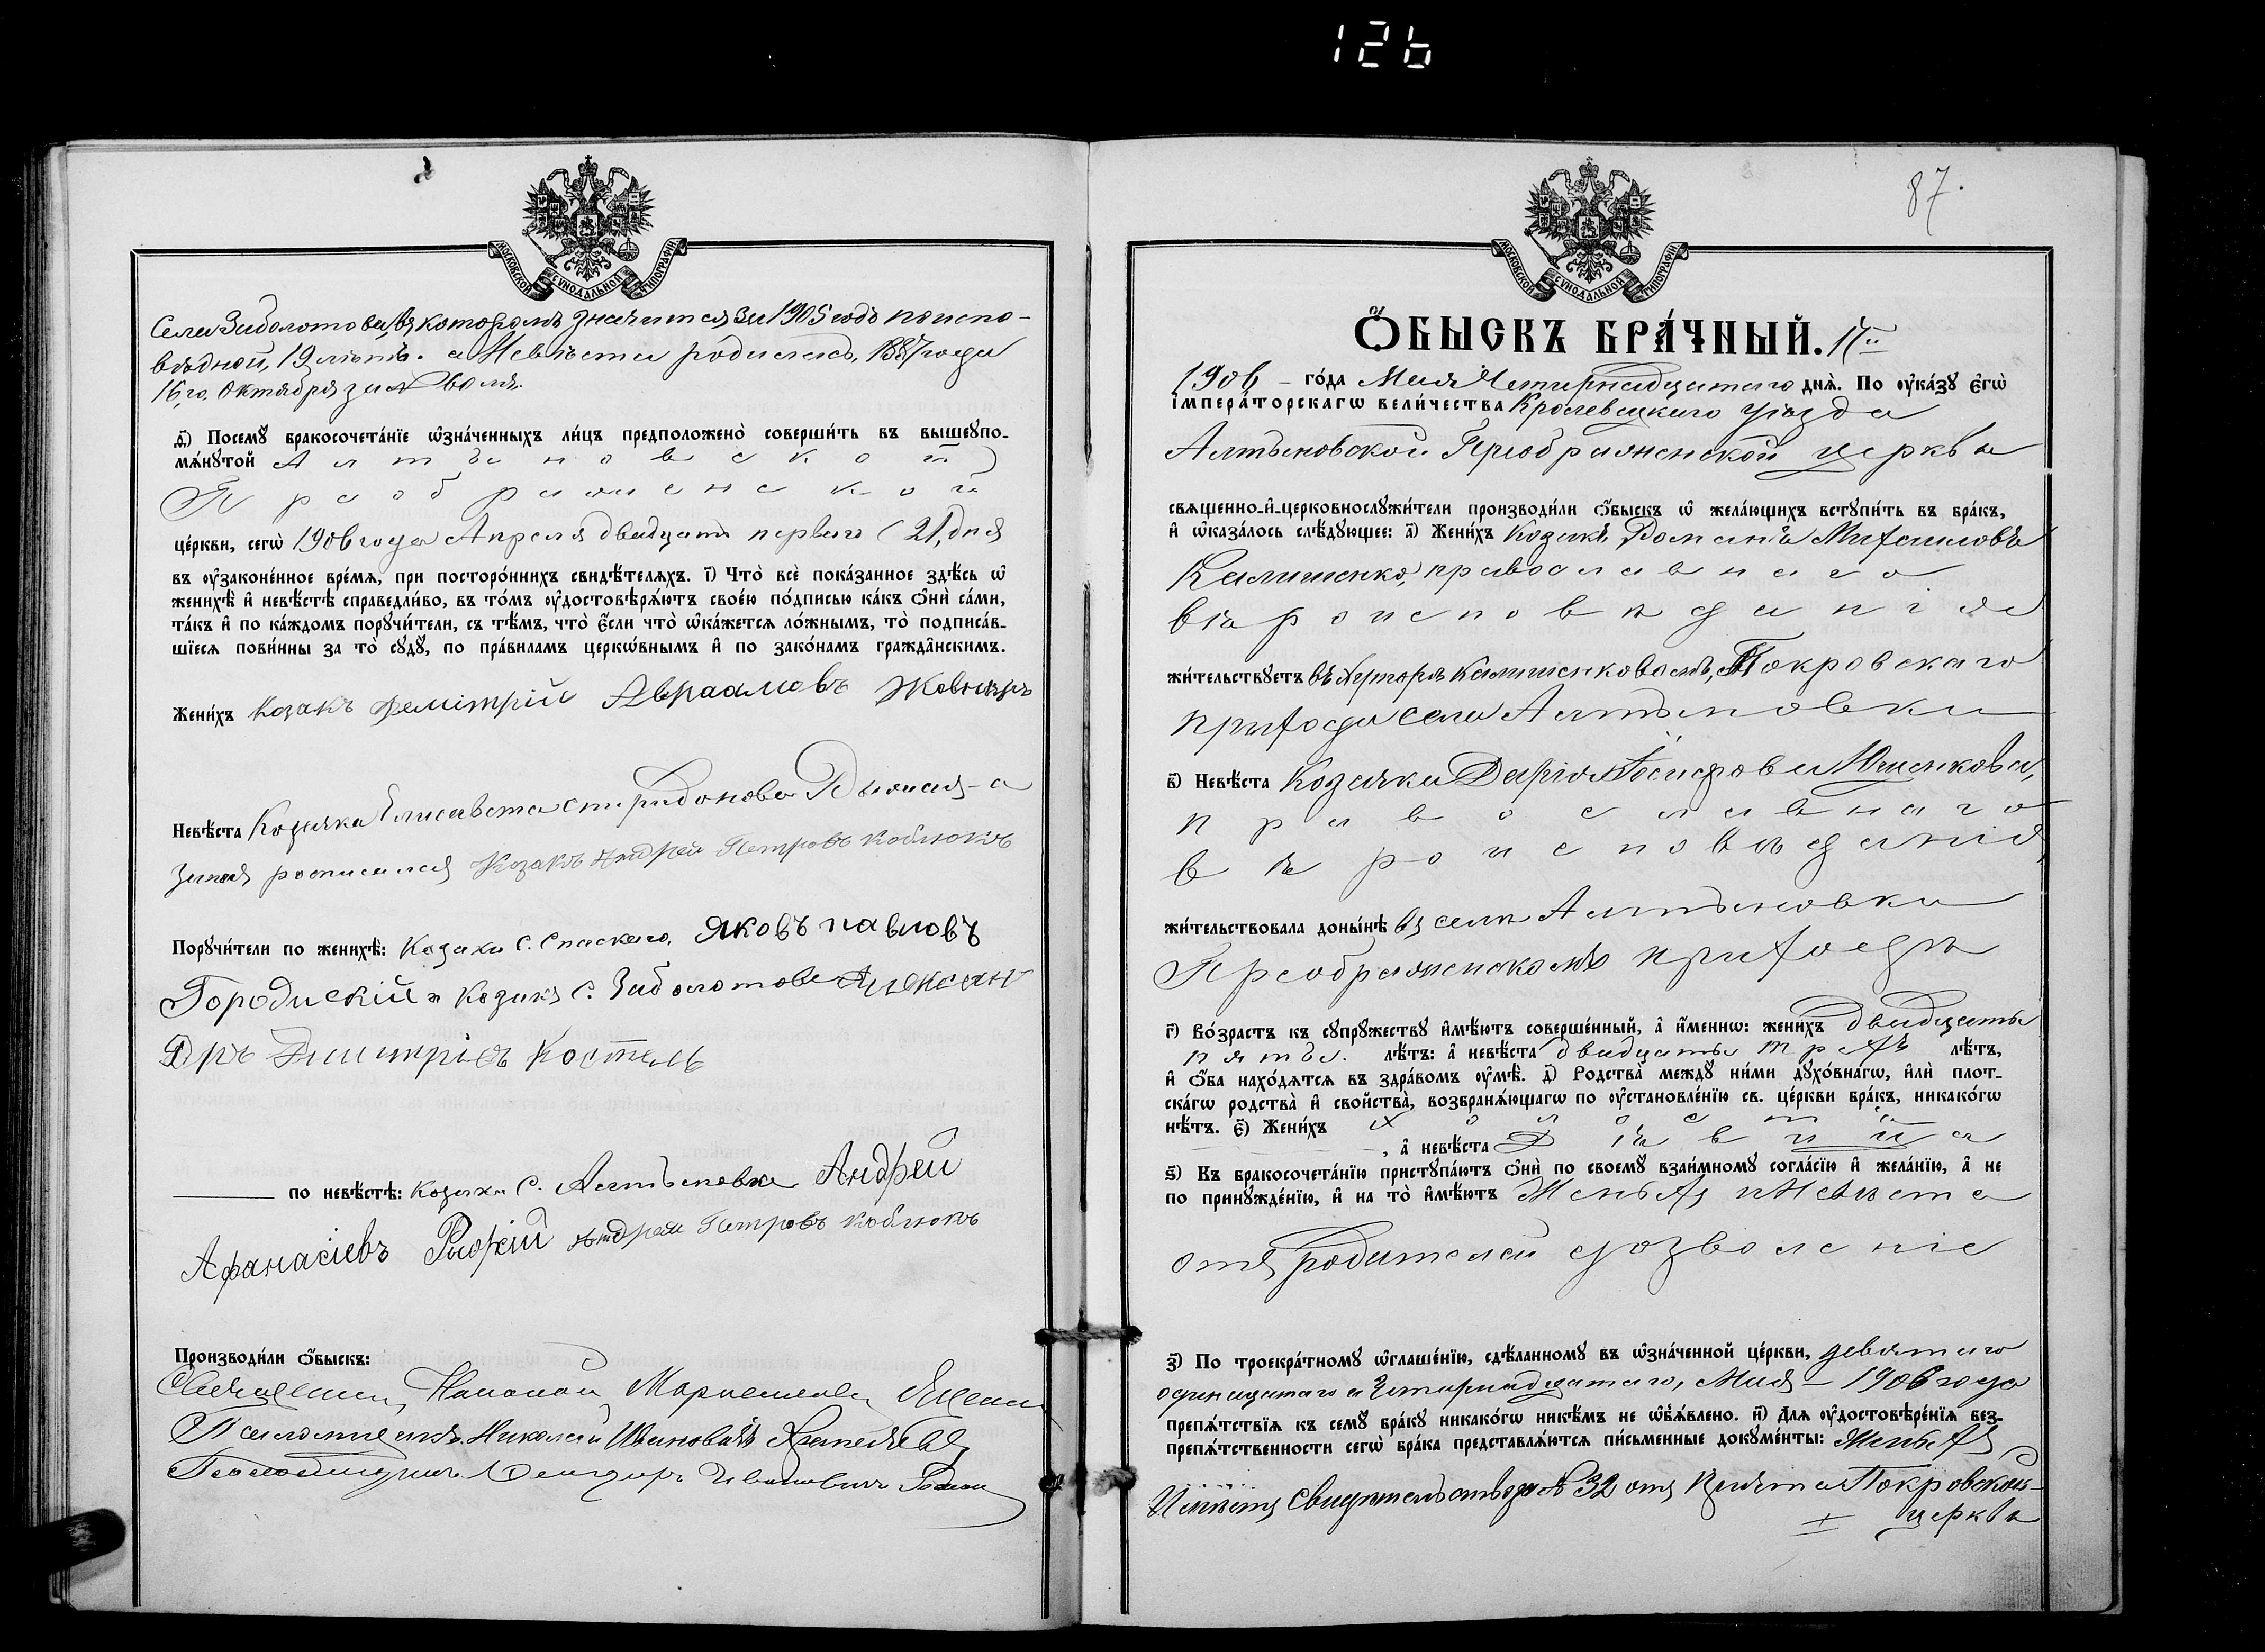 126
МОСКОВСКОЙ СУНОДАЛЬНОЙ ТИПОГРАФІИ
Села Заболотова, въ которомъ значится за 1905 годъ по испо-
вѣдной, 19 лѣтъ. а Невѣста родилась, 1887 года
16го Октября
д҃і) Посемꙋ бракосочета́нїе ѡ҆зна́ченныхъ ли́цъ предположено̀ соверши́ть въ вышеꙋпо-
мѧ́нꙋтой Алтыновской
Преображенской
це́ркви, сегѡ̀ 1906 года Апреля двадцать перваго (21, дня
въ ᲂу҆законе́нное вре́мѧ, при посторо́ннихъ свидѣ́телѧхъ. і҃) Что̀ всѐ пока́занное здѣ́сь ѡ҆
женихѣ̀ и҆ невѣ́стѣ справедли́во, въ то́мъ ᲂу҆достовѣрѧ́ютъ свое́ю по́дписью ка́къ ѻ҆нѝ са́ми,
та́къ и҆ по ка́ждомъ порꙋчи́тели, съ тѣ́мъ, что̀ є҆́сли что̀ ѡ҆ка́жетсѧ ло́жнымъ, то̀ подписа́в-
шїесѧ пови́нны за то̀ сꙋдꙋ̀, по пра́виламъ церкѡ́внымъ и҆ по зако́намъ гражда́нскимъ.
Жени́хъ Козакъ Демітрій Авраамовъ Жовниръ
Невѣ́ста Козачка Елисавета Спиридонова
росписался Козакъ Андрей Петровъ Коблюкъ
Порꙋчи́тели по женихѣ̀: Козаки С. Спаскаго, Яковъ павловъ
Городискій и Козакъ С. Заболотова Алексан
Дръ Димитріевъ Костель
по невѣ́стѣ: Козаки С. Алтыновки Андрей
Афанасіевъ Рыфкій Андрей Петровъ Коблюкъ
Производи́ли ѻ҆́быскъ:
Священникъ
Псаломщикъ Николай Ивановъ
Псаломщикъ Ивановичъ
87.
МОСКОВСКОЙ СУНОДАЛЬНОЙ ТИПОГРАФІИ
Ѻ҆́БЫСКЪ БРА́ЧНЫЙ. 17й
1906 – го́да Мая Четырнадцатаго днѧ̀. По ᲂу҆ка́зꙋ є҆гѡ̀
і҆мпера́торскагѡ вели́чества Кролевецкаго уѣзда
Алтыновской Преображенской церкви
свѧщенно-и҆-церковнослꙋжи́тели производи́ли ѻ҆́быскъ ѡ҆ жела́ющихъ встꙋпи́ть въ бра́къ,
и҆ ѡ҆каза́лось слѣ́дꙋющее: а҃) Жени́хъ Козакъ Романъ Михаиловъ
Калишенко, православнаго
вѣроисповѣданія
жи́тельствꙋетъ въ Хуторѣ Калишенковомъ, Покровскаго
прихода села Алтыновки
в҃) Невѣ́ста Козачка Дарія
православнаго
вѣроисповѣданія,
жи́тельствовала доны́нѣ въ селѣ Алтыновки
Преображенскомъ приходѣ
г҃) Во́зрастъ къ сꙋпрꙋ́жествꙋ и҆мѣ́ютъ соверше́нный, а҆ и҆́меннѡ: жени́хъ двадцать
пять. лѣ́тъ: а҆ невѣ́ста двадцать трехъ лѣ́тъ,
и҆ ѻ҆́ба нахо́дѧтсѧ въ здра́вомъ ᲂу҆мѣ̀. д҃) Родства̀ междꙋ̀ ни́ми дꙋхо́внагѡ, и҆лѝ плот-
ска́гѡ родства̀ и҆ свойства̀, возбранѧ́ющагѡ по ᲂу҆становле́нїю св. це́ркви бра́къ, никако́гѡ
нѣ́тъ. є҃) Жени́хъ Холостъ
, а҆ невѣ́ста Дѣвица
ѕ҃) Къ бракосочета́нїю пристꙋпа́ютъ ѻ҆нѝ по своемꙋ̀ взаи́мномꙋ согла́сїю и҆ жела́нїю, а҆ не
по принꙋжде́нїю, и҆ на то̀ и҆мѣ́ютъ Женихъ и Невѣста
отъ родителей дозволеніе
з҃) По троекра́тномꙋ ѡ҆глаше́нїю, сдѣ́ланномꙋ въ ѡ҆зна́ченной це́ркви, девятаго
одинацатаго и Четырнадцатаго, Мая – 1906 года
препѧ́тствїѧ къ семꙋ̀ бра́кꙋ никако́гѡ никѣ́мъ не ѡ҆б̾ѧ́влено. и҃) Длѧ ᲂу҆достовѣре́нїѧ без-
препѧ́тственности сегѡ̀ бра́ка представлѧ́ютсѧ пи́сьменные докꙋме́нты: Женихъ
Имѣетъ свидѣтельство за № 32 отъ Причта Покровской
церкви